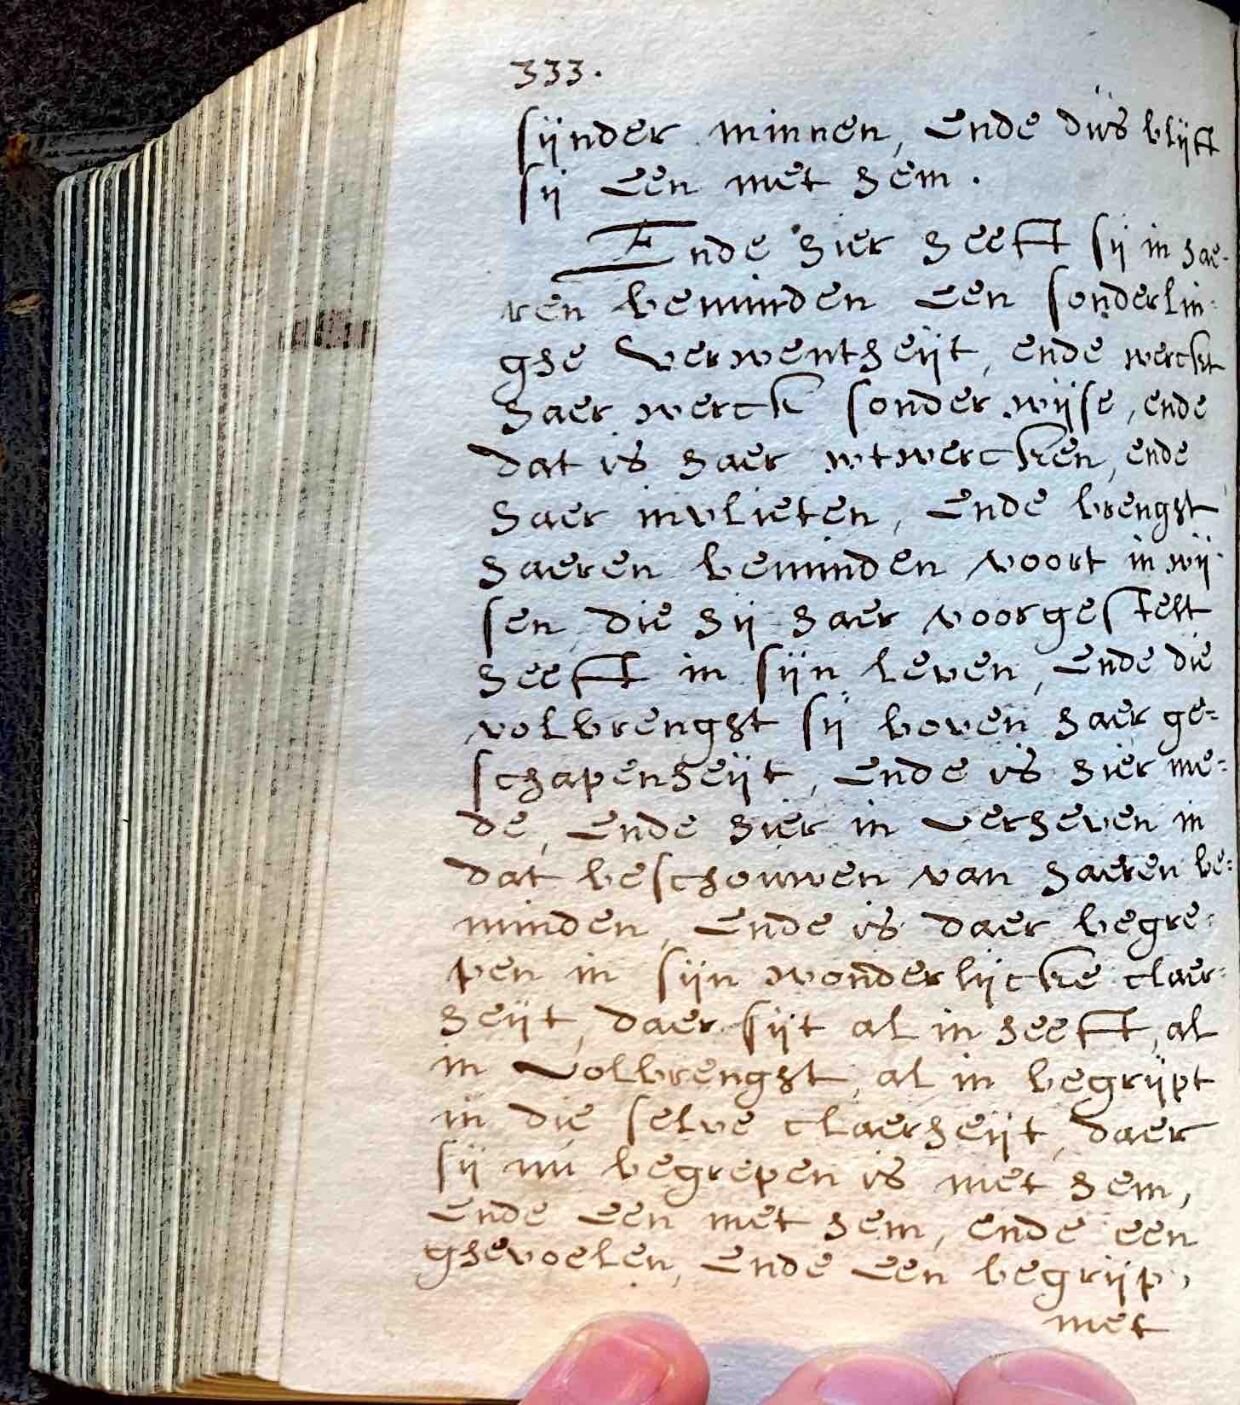 333.
sijnder minnen, Ende dus blijft
sij Een met hem.
Ende hier heeft sij in hae-
ren beminden Een sonderlin-
ghe verwentheijt, ende werckt
haer werck sonder wijse, ende
dat is haer wtwercken, ende
haer invlieten, Ende brenght
haeren beminden voort in wij-
sen, die hij haer voorgestelt
heeft in sijn leven, Ende die
volbrenght sij boven haer ge=
schapenheijt, Ende is hier me=
de, Ende hier in verheven in
dat beschouwen van haeren be=
minden, Ende is daer begre=
pen in sijn wonderlijcke claer=
heijt, daer sijt al in heeft, al
in volbrenght, al in begrijpt
in die selve claerheijt, daer
sij nu begrepen is met hem,
Ende Een met hem, ende een
ghevoelen, Ende Een begrijp,
met